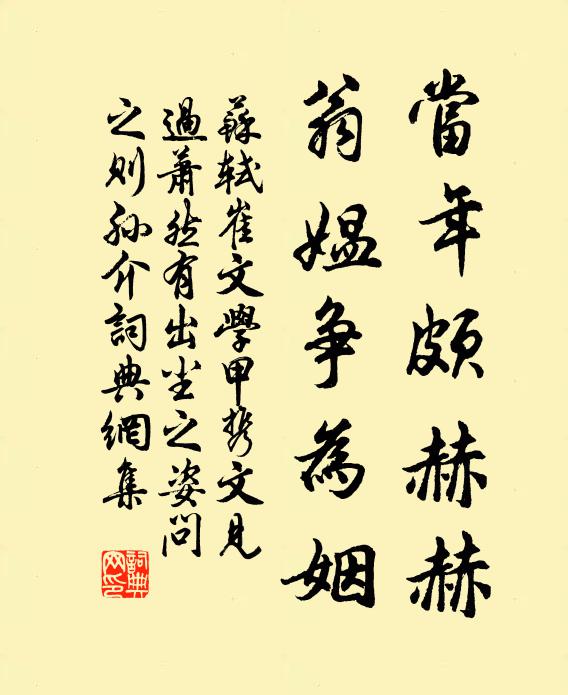 當年頗赫赫
翁媼爭為姻
蘇軾崔文學甲攜文見
過蕭然有出塵之姿問
之則孫介詞典網集
詞典網印